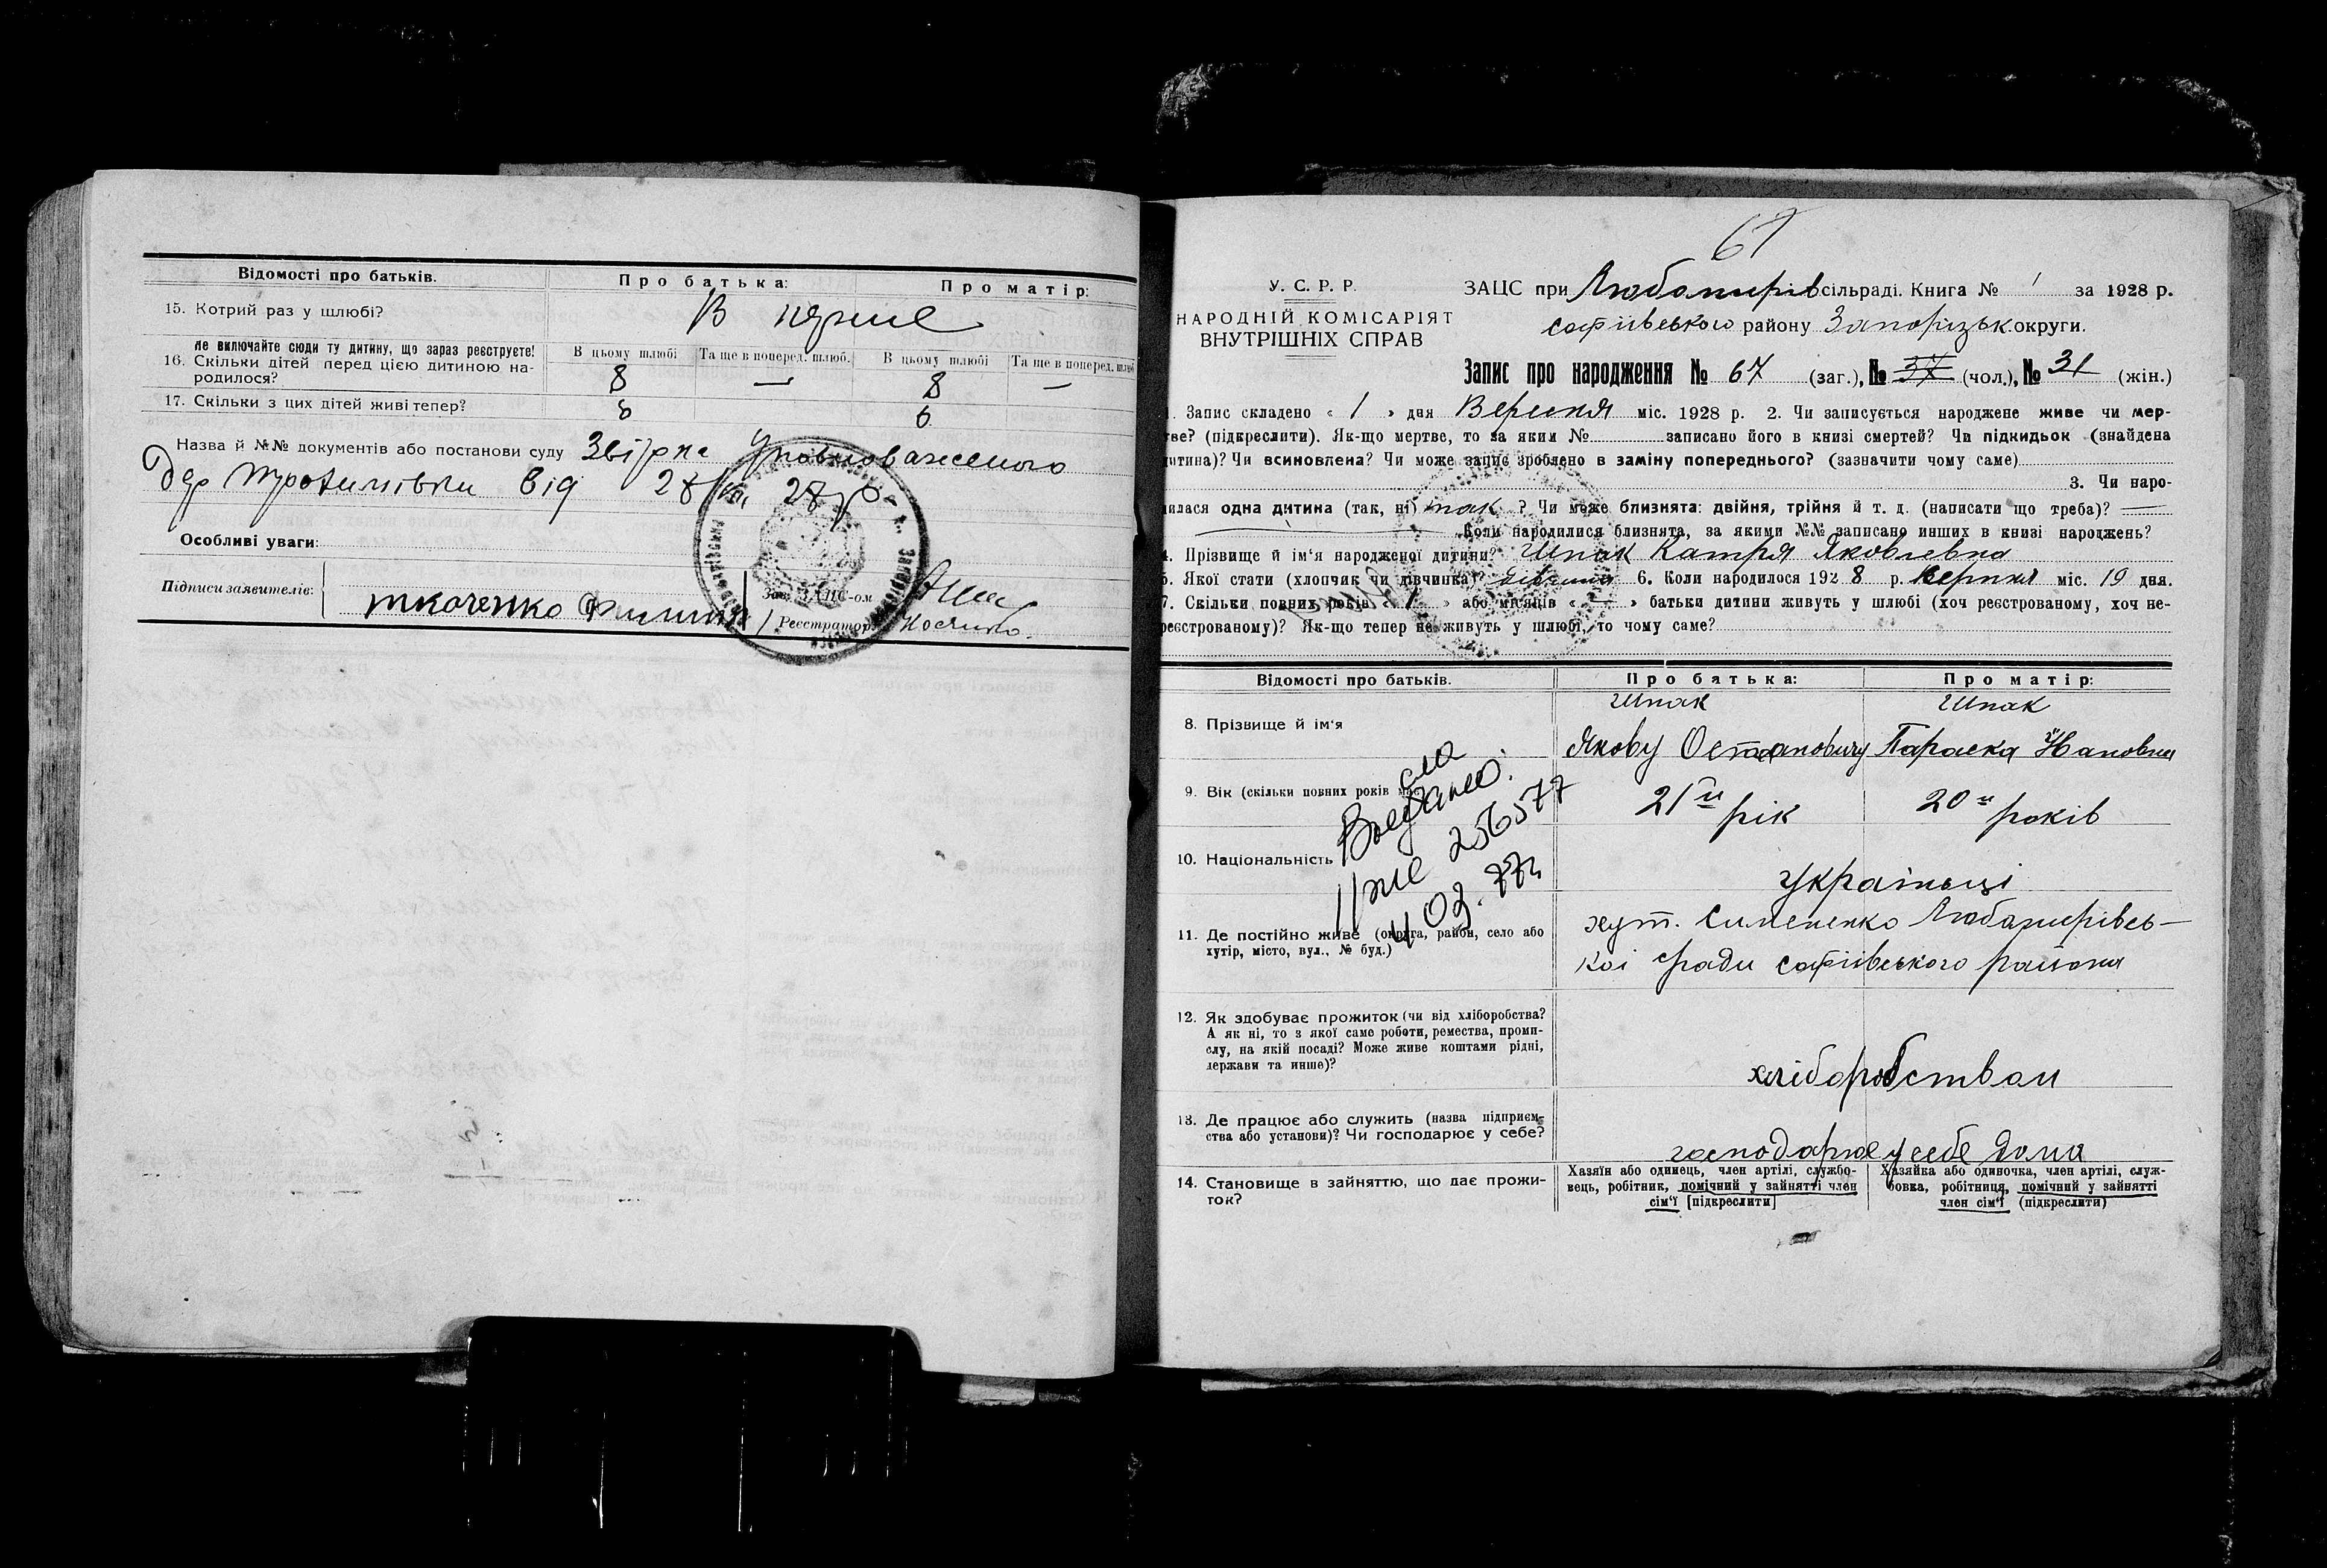 Відомості про батьків. Про батька: Про матір:
15. Котрий раз у шлюбі? В перше
Не включайте сюди ту дитину, що зараз реєструєте! В цьому шлюбі Та ще в поперед. шлюб. В цьому шлюбі Та ще в поперед. шлюб
16. Скільки дітей перед цією дитиною на-
родилося? 8 — 8 —
17. Скільки з цих дітей живі тепер? 6 6
Назва й №№ документів або постанови суду Звірка Уповноваженого
від 28/VIII 28 р
Особливі уваги:
Підписи заявителів: ткаченко Филип
Зав. ЗАЦС-ом
Реєстратор
67
У. С. Р. Р.
НАРОДНІЙ КОМІСАРІЯТ
ВНУТРІШНІХ СПРАВ
ЗАЦС при Любомирів сільраді. Книга № 1 за 1928 р.
софіівського району Запорізьк округи.
Запис про народження № 67 (заг.), № 37 (чол.), № 31 (жін.)
1. Запис складено « 1 » дня Вересня міс. 1928 р. 2. Чи записується народжене живе чи мер-
тве? (підкреслити). Як-що мертве, то за яким № записано його в книзі смертей? Чи підкидьок (знайдена
дитина)? Чи всиновлена? Чи може запис зроблено в заміну попереднього? (зазначити чому саме)
3. Чи наро-
дилася одна дитина (так, ні) так ? Чи може близнята: двійня, трійня й т. д. (написати що треба)? —
Коли народилися близнята, за якими №№ записано инших в книзі народжень?
4. Прізвище й ім'я народженої дитини? Шпак Катря Яковлевна
5. Якої стати (хлопчик чи дівчинка)? дівчина 6. Коли народилося 1928 р. Серпня міс. 19 дня.
7. Скільки повних років « 1 » або місяців « — » батьки дитини живуть у шлюбі (хоч реєстрованому, хоч не-
реєстрованому)? Як-що тепер не живуть у шлюбі, то чому саме?
Відомості про батьків. Про батька: Про матір:
8. Прізвище й ім'я Шпак Якову Остаповичу Шпак Параска Ивановна
9. Вік (скільки повних років має) 21й рік 20й років
10. Національність українці
256577
11. Де постійно живе (округа, район, село або
хутір, місто, вул., № буд.) хут. Симененко Любамирівсь-
кої сради софіівського района
12. Як здобуває прожиток (чи від хліборобства?
А як ні, то з якої саме роботи, ремества, проми-
слу, на якій посаді? Може живе коштами рідні,
держави та инше)? хліборобством
13. Де працює або служить (назва підприєм-
ства або установи)? Чи господарює у себе? господарює у себе дома
14. Становище в зайняттю, що дає прожи-
ток?
Хазяїн або одинець, член артілі, службо-
вець, робітник, помічний у зайнятті член
сім'ї [підкреслити]
Хазяйка або одиночка, член артілі, служ-
бовка, робітниця, помічний у зайнятті
член сім'ї (підкреслити)